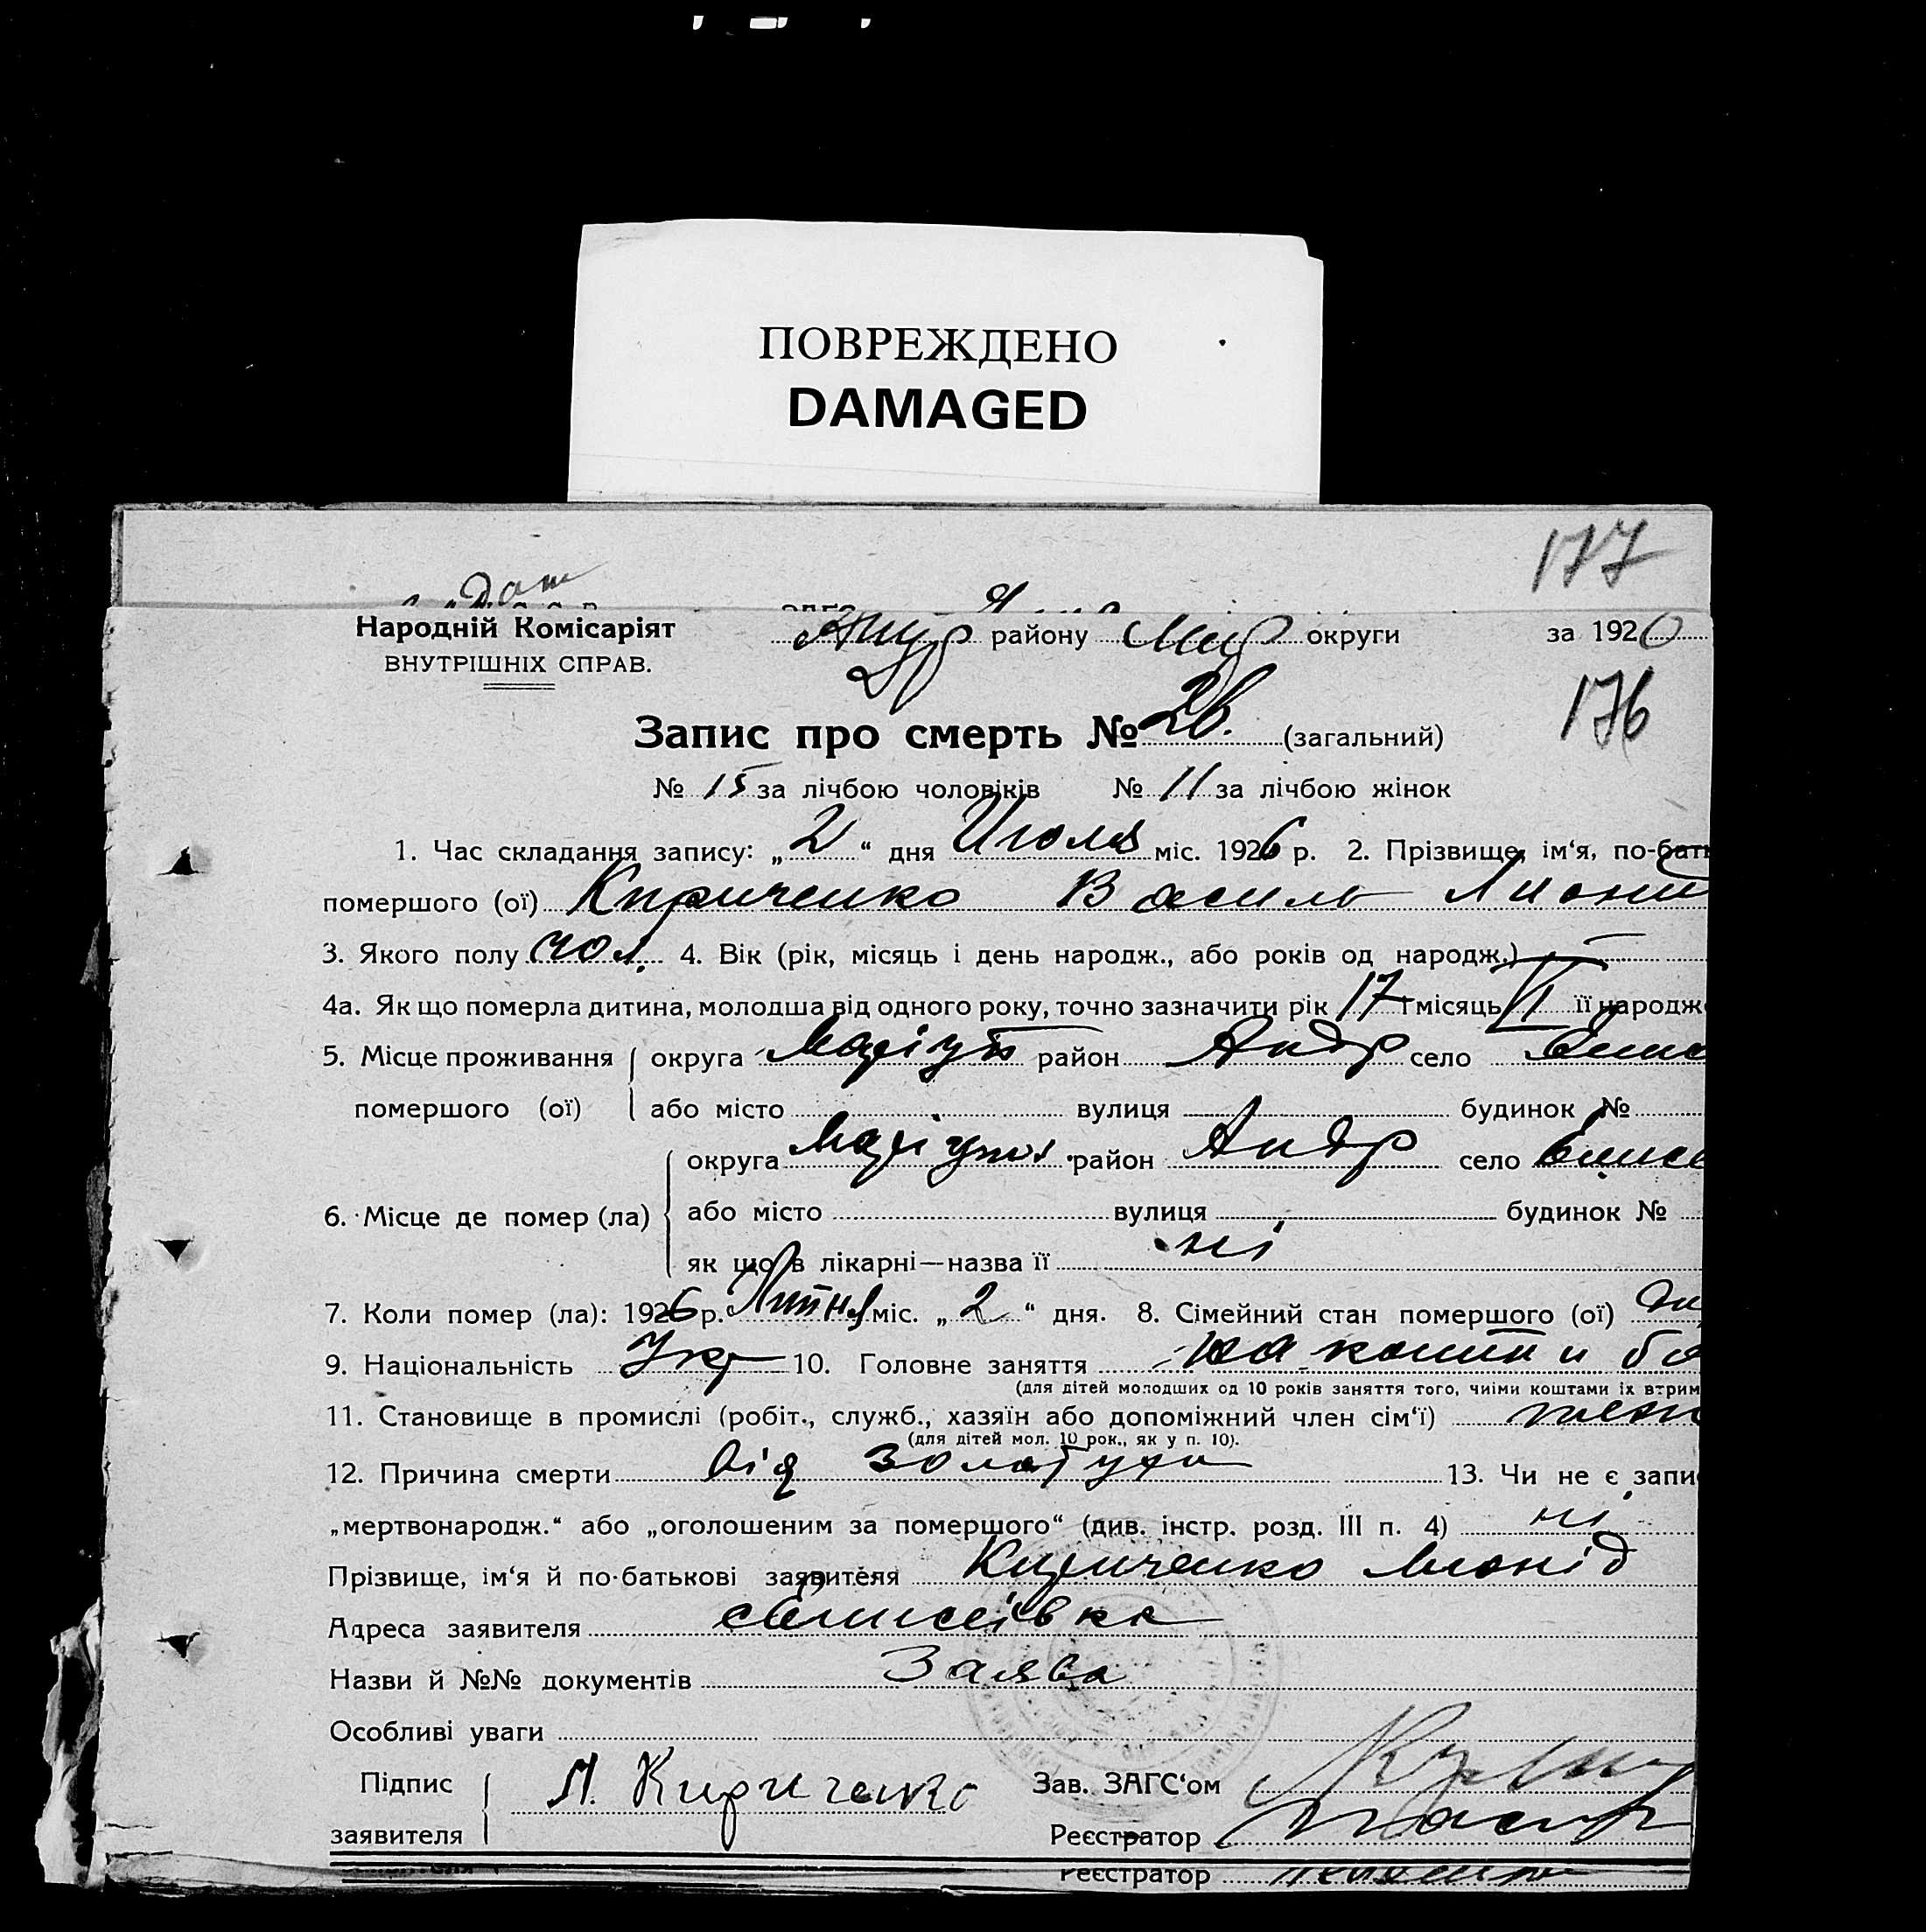 ПОВРЕЖДЕНО
DAMAGED
177
Народній Комісаріят
району округи за 1920
ВНУТРІШНІХ СПРАВ.
176
Запис про смерть № 26. (загальний)
№ 15 за лічбою чоловіків № 11 за лічбою жінок
1. Час складання запису: „2“ дня Июля міс. 1926 р. 2. Прізвище, ім‘я, по-бать
помершого (ої) Кириченко Василь
3. Якого полу чол. 4. Вік (рік, місяць і день народж., або років од народж.) —
4а. Як що померла дитина, молодша від одного року, точно зазначити рік 17 місяць VI її народж
5. Місце проживання округа Маріуп район Андр село
помершого (ої) або місто вулиця будинок №
округа Маріуп район Андр село Єлисе
6. Місце де помер (ла) або місто вулиця будинок №
як що в лікарні—назва її ні
7. Коли помер (ла): 1926 р. Липня міс. „2“ дня. 8. Сімейний стан помершого (ої)
9. Національність Укр 10. Головне заняття на кошти
(для дітей молодших од 10 років заняття того, чиїми коштами їх втрим
11. Становище в промислі (робіт., служб., хазяїн або допоміжний член сім‘ї)
(для дітей мол. 10 рок., як у п. 10).
12. Причина смерти від золотухи 13. Чи не є запи
„мертвонародж.“ або „оголошеним за помершого“ (див. інстр. розд. III п. 4) ні
Прізвище, ім‘я й по-батькові заявителя Кириченко Леонід
Адреса заявителя с Єлисеівка
Назви й №№ документів Заява
Особливі уваги
Підпис Л. Кириченко Зав. ЗАГС‘ом
заявителя Реєстратор
Реєстратор